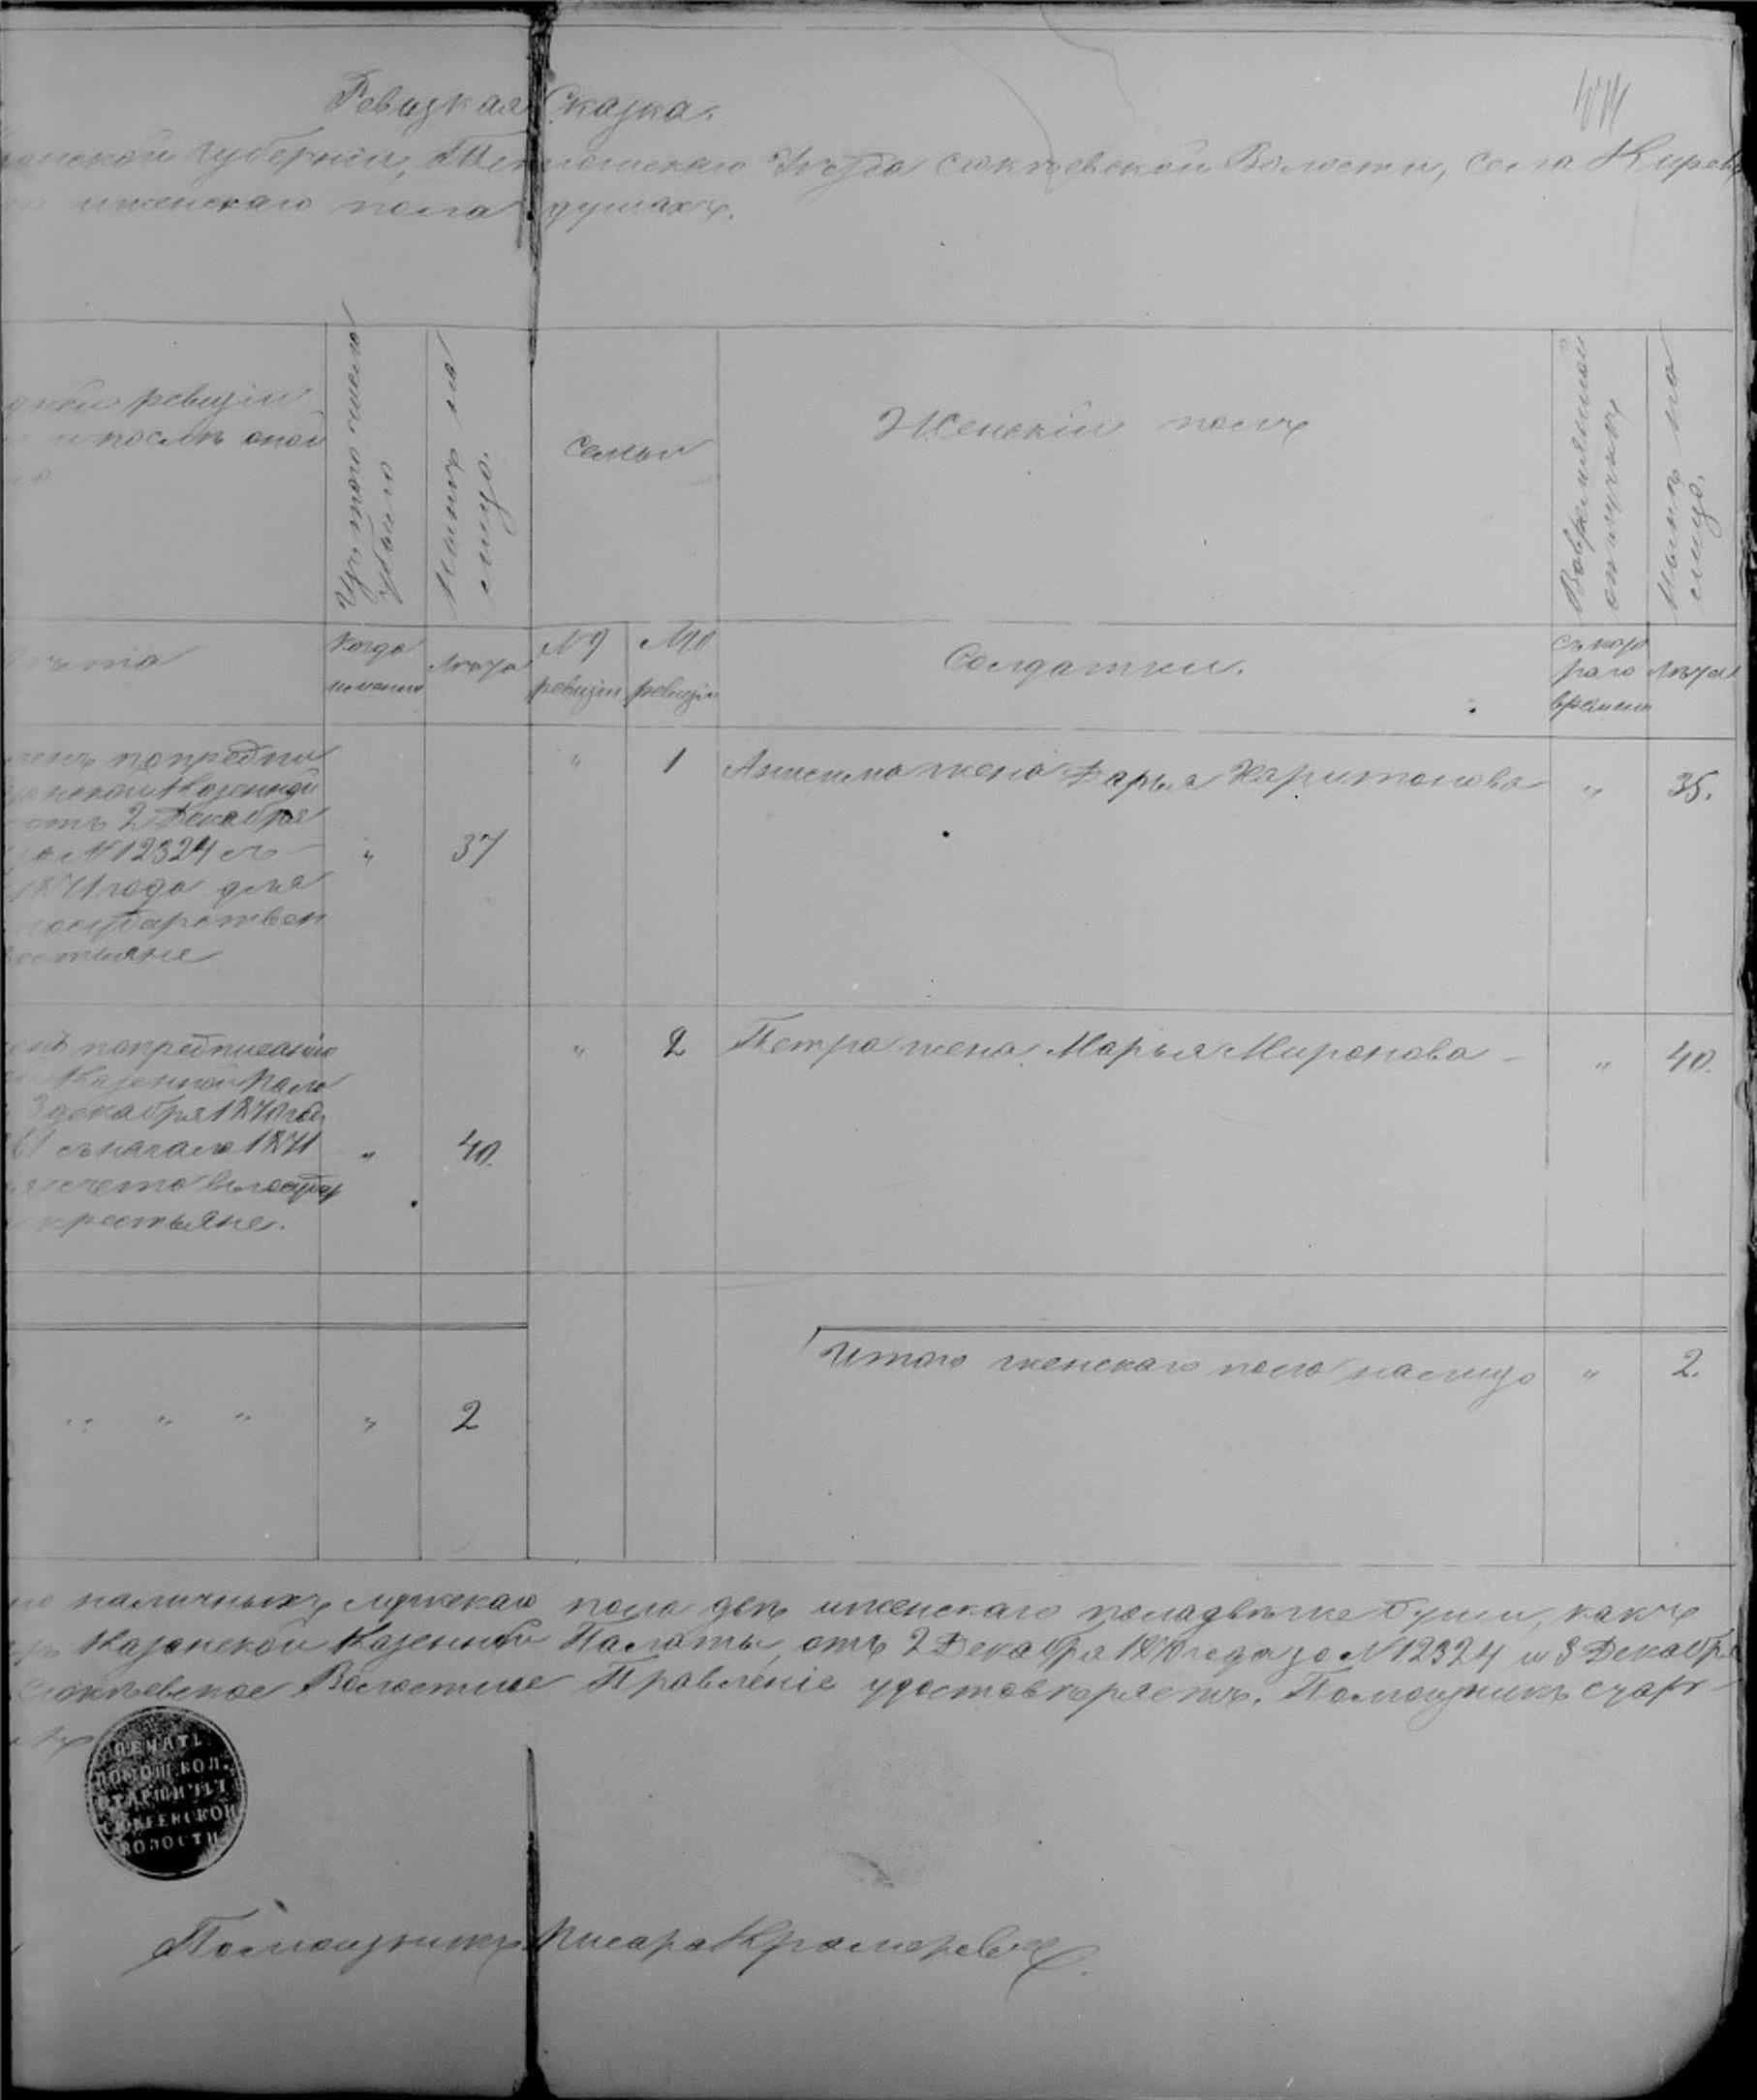 Ревизкая Сказка.
Губерніи, Тетюшскаго Уѣзда Сюкѣевской Волости, села Киреев
иженскаго пола душахъ.
ревизіи
и послѣ оной
Изъ того числа убыло
Нынѣ на лицо.
Семьи
Женскій полъ
Во временной отлучкѣ
Нынѣ на лицо.
лѣта
Когда именно
Лѣта
№ 9 ревизіи
№ 10 ревизіи
Солдатки.
Съ кото раго времени
Лѣта
попредпи
Казенной
отъ 2 Декабря
№ 12324 съ
1871 года для
государствен
"
37
"
1
Анисима жена Дарья Харитонова
"
35.
попредписанію
Казенной Пала
3 декабря 1870 год
съ начала 1871
счета въ госуд
крестьяне.
"
40.
"
2
Петра жена Марья Миронова
"
40.
" " "
"
2
Итого женскаго пола налицо
"
2.
наличныхъ мужскаго пола двѣ иженскаго пола двѣ же души, какъ
Казанской Казенной Палаты, отъ 2 Декабря 1870 года за № 12324 и 3 Декабря
Сюкѣевское Волостное Правленіе удостовѣряетъ. Помощникъ стар
ПЕЧАТЬ
ПОМОЩ. ВОЛ.
СТАРШИНЫ
СЮКЕЕВСКОЙ
ВОЛОСТИ
Помощникъ Писара